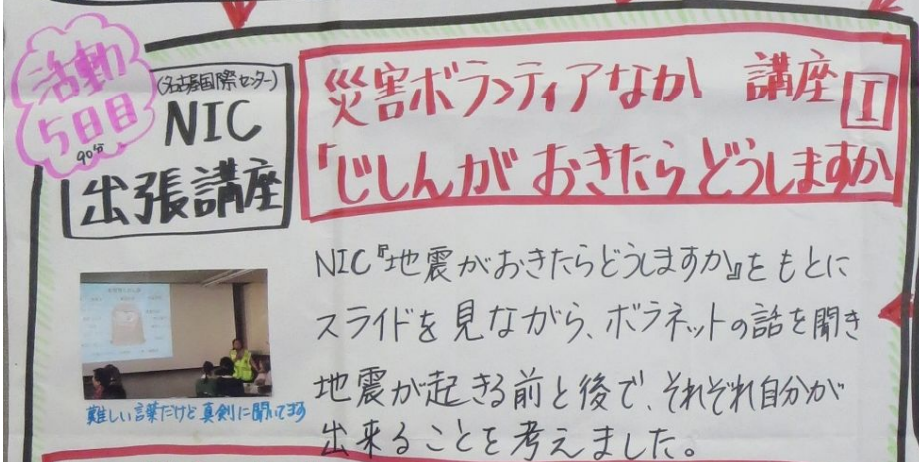 活動
5日目
90分
(名古屋国際センター)
NIC
出張講座
災害ボランティアなか 講座 I
「じしんが おきたら どうしますか
NIC『地震がおきたらどうしますか』をもとに
スライドを見ながら、ボラネットの話を聞き
地震が起きる前と後で、それぞれ自分が
出来ることを考えました。
難しい言葉だけど真剣に聞いてます